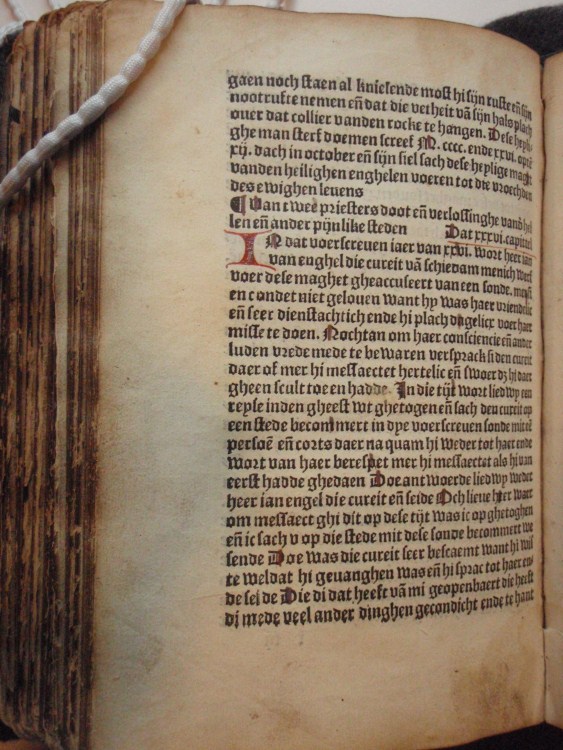 gaen noch staen al knielende most hi sijn ruste en̄ sijn
nootrufte nemen en̄ dat die vetheit vā sijn hals plach
ouer dat collier vanden rocke te hangen. Dese heyli
ghe man sterf doemen screef M. cccc. ende xxvi. opē
xij. dach in october en̄ sijn siel sach dese heylige magt
vanden heilighen enghelen voeren tot die vroechden
des ewighen leuens
¶ Van twee priesters doot en̄ verlossinghe vandē hel
len en̄ ander pijnlike steden Dat xxxvi. capittel
IN dat voerscreuen iaer van xxvi. wort heer ian
van enghel die cureit vā schiedam menich werf
voer dese maghet gheaccuseert van een sonde.
en condet niet gelouen want hy was haer vriendelic
en̄ seer dienstachtich ende hi plach dagelicx voer haer
misse te doen. Nochtan om haer consciencie en̄ ander
luden vrede mede te bewaren versprack si den cureit
daer of mer hi messaectet hertelic en̄ swoer dz hi daer
gheen scult toe en hadde. In die tijt wort liedwy een
reyse inden gheest wt ghetogen en̄ sach den cureit op
een stede becommert in dye voerscreuen sonde mit eē
persoē en̄ corts daer na quam hi weder tot haer ende
wort van haer berespet mer hi messaectat als hi van
eerst hadde ghedaen Doe antwoerde liedwy weder
heer ian engel die cureit en̄ seide Och lieue heer waer
om messaect ghi dit op dese tijt was ic op ghetoghen
en̄ ic sach v op die stede mit dese sonde becommert we
sende Doe was die cureit seer bescaemt want hi wis
te wel dat hi geuanghen was en̄ hi sprac tot haer en
de sei de Die di dat heeft vā mi geopenbaert die heeft
di mede veel ander dinghen gecondicht ende te hant